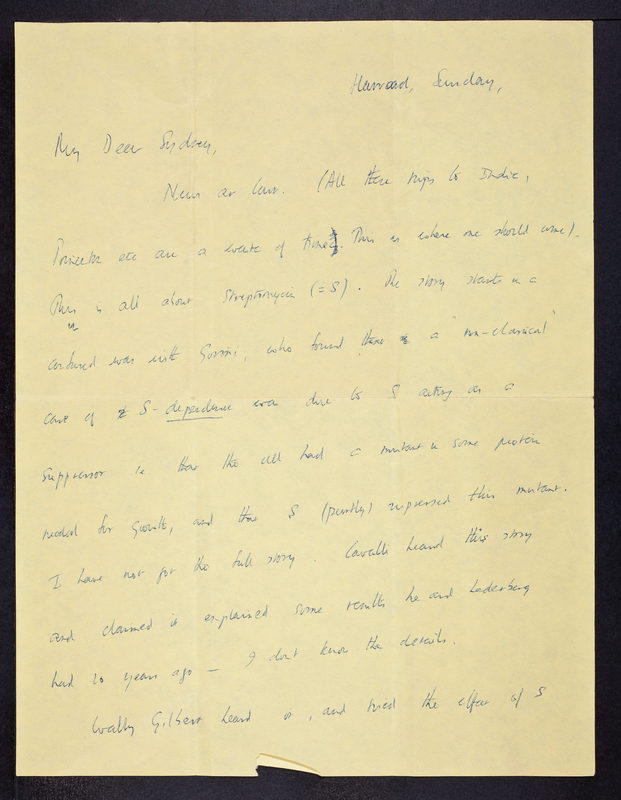 Harvard, Sunday,
My Dear Sydney,
News at last. (All these trips to India,
Princeton etc are a waste of time. This is where one should come).
This is all about Streptomycin (= S). The story starts in a
confused way with Gorini, who found that a "non-classical"
case of S-dependence was due to S acting as a
suppressor ie that the cell had a mutant in some protein
needed for growth, and that S (partly) supressed this mutant.
I have not got the full story. Cavalli heard this story
and claimed it explained some results he and Lederberg
had 10 years ago — I don't know the details.
Wally Gilbert heard it, and tried the effect of S